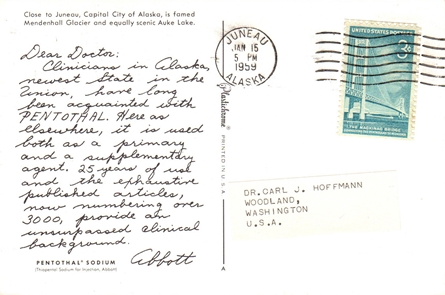 Close to Juneau, Capital City of Alaska, is famed
Mendenhall Glacier and equally scenic Auke Lake.
Dear Doctor:
Clinicians in Alaska,
newest State in the
Union, have long
been acquainted with
PENTOTHAL. Here as
elsewhere, it is used
both as a primary
and a supplementary
agent. 25 years of use
and the exhaustive
published articles,
now numbering over
3000, provide an
unsurpassed clinical
background.
Abbott
PENTOTHAL® SODIUM
(Thiopental Sodium for Injection, Abbott)
Plastichrome®
PRINTED IN U.S.A.
A
JUNEAU
JAN 15
5 PM
1959
ALASKA
UNITED STATES POSTAGE
3¢
THE MACKINAC BRIDGE
DR. CARL J. HOFFMANN
WOODLAND,
WASHINGTON
U.S.A.